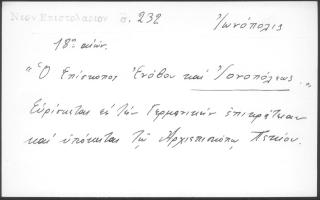 Νεον Επιστολαριον σ. 232
Ἰωνόπολις
18ου αἰών.
"Ὁ Ἐπίσκοπος Ἐνόβου καὶ Ἰονοπόλεως."
Εὑρίσκεται εἰς τῶν Γερμανικῶν ἐπικράτειαν
καὶ ὑπόκειται τῷ Ἀρχιεπισκόπῳ Πεκίου.